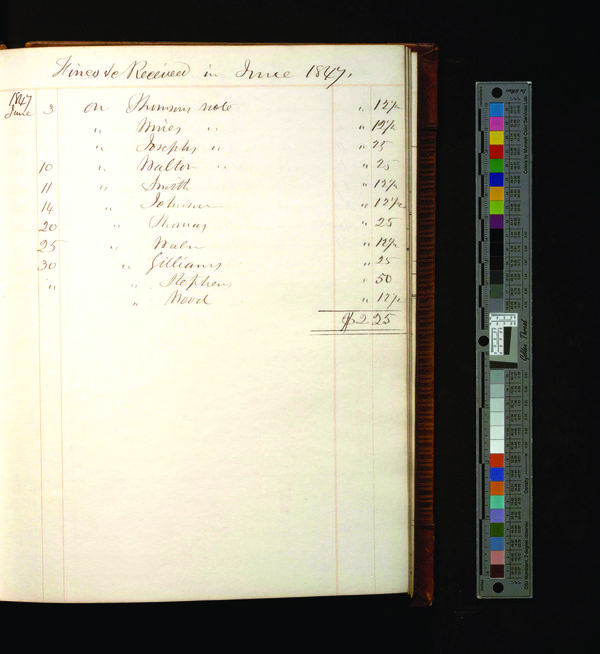 Fines &c Received in June 1847.
1847
June 3 on Simsons note " 12½
" Mires " " 12½
" Josephs " " 25
10 " Walton " " 25
11 " Smith " 12½
14 " Johnson " 12½
20 " Thomas " 25
25 " " 12½
30 " Gilliams " 25
" " Stephens " 50
" Wood " 12½
$2 25
Golden Thread